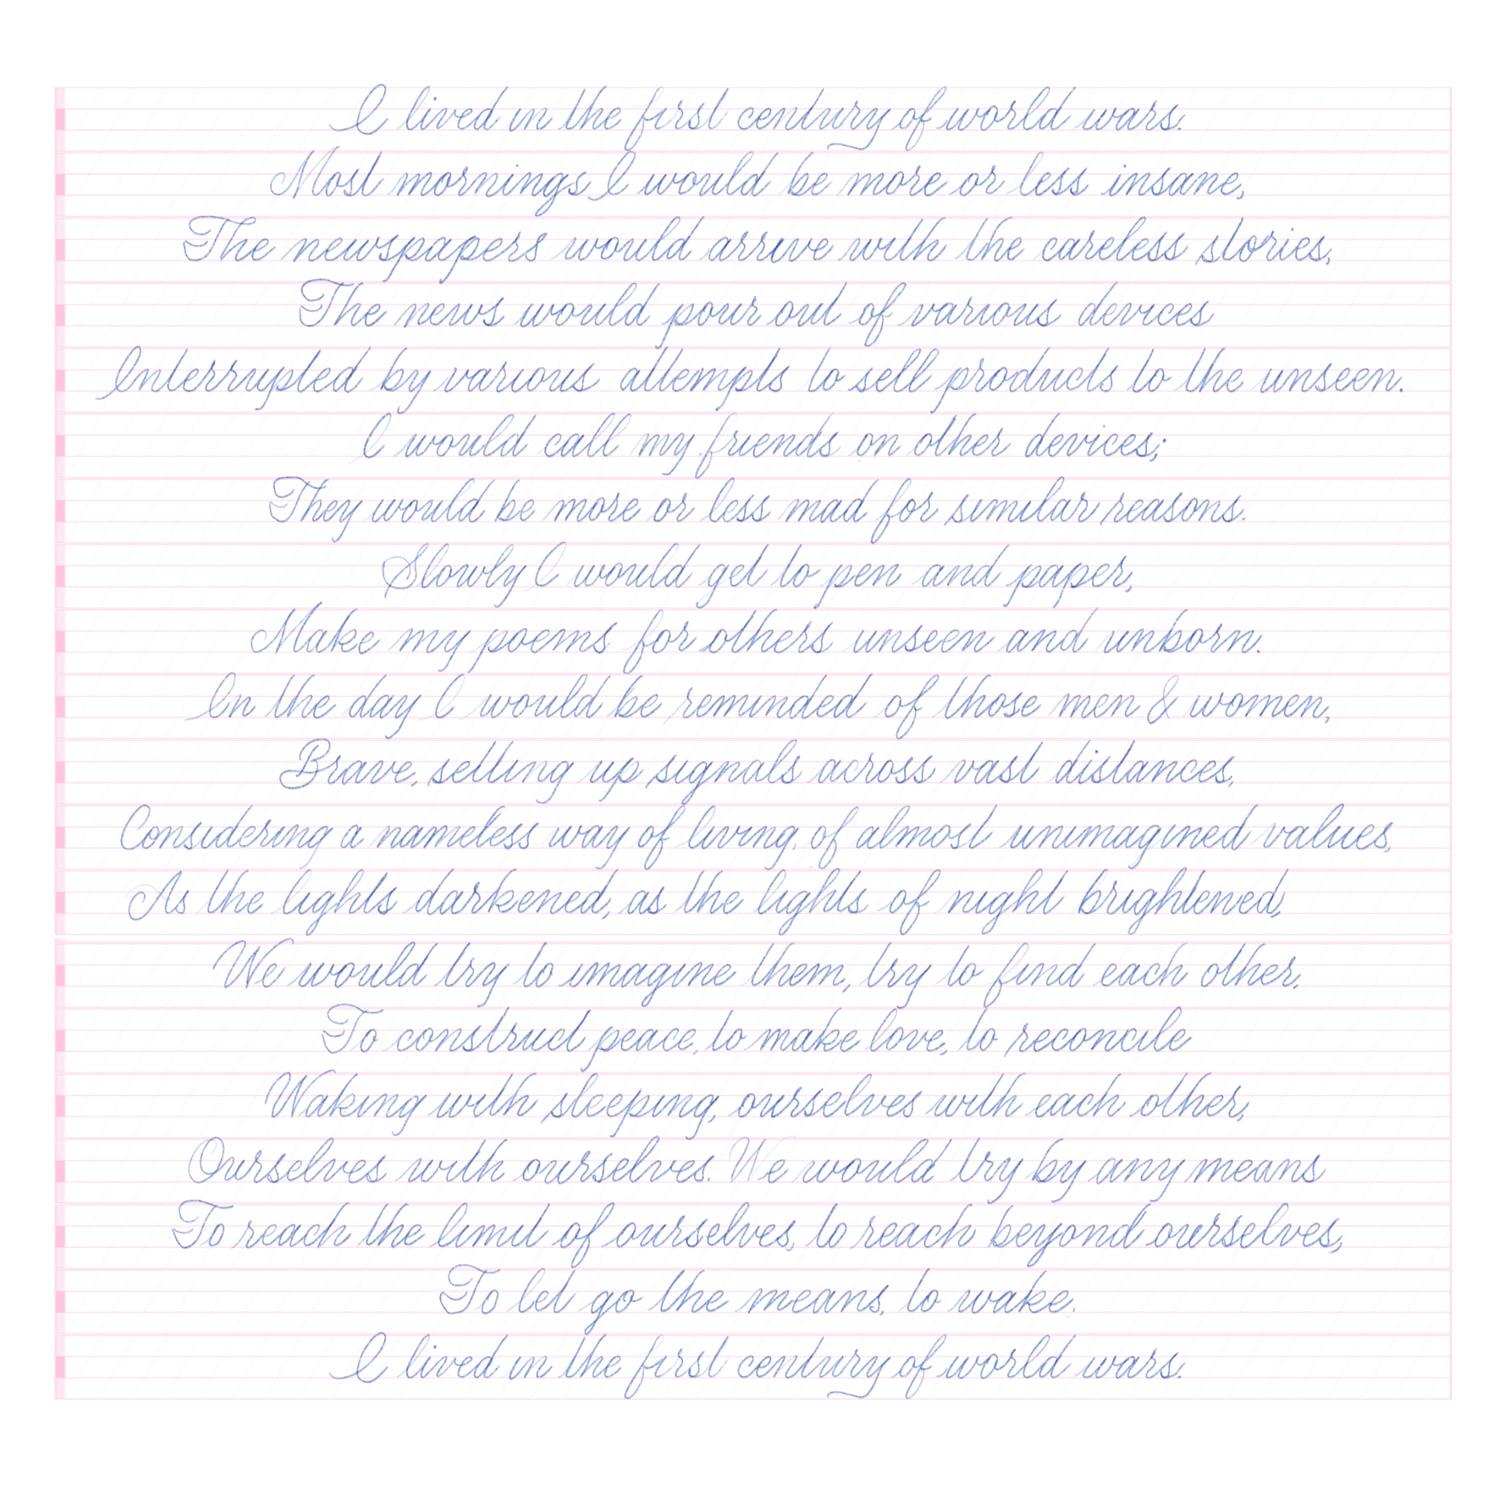 I lived in the first century of world wars.
Most mornings I would be more or less insane,
The newspapers would arrive with the careless stories,
The news would pour out of various devices
Interrupted by various attempts to sell products to the unseen.
I would call my friends on other devices;
They would be more or less mad for similar reasons.
Slowly I would get to pen and paper,
Make my poems for others unseen and unborn.
In the day I would be reminded of those men & women,
Brave, setting up signals across vast distances,
Considering a nameless way of living, of almost unimagined values,
As the lights darkened, as the lights of night brightened,
We would try to imagine them, try to find each other.
To construct peace, to make love, to reconcile
Waking with sleeping, ourselves with each other,
Ourselves with ourselves. We would try by any means
To reach the limit of ourselves, to reach beyond ourselves,
To let go the means, to wake.
I lived in the first century of world wars.